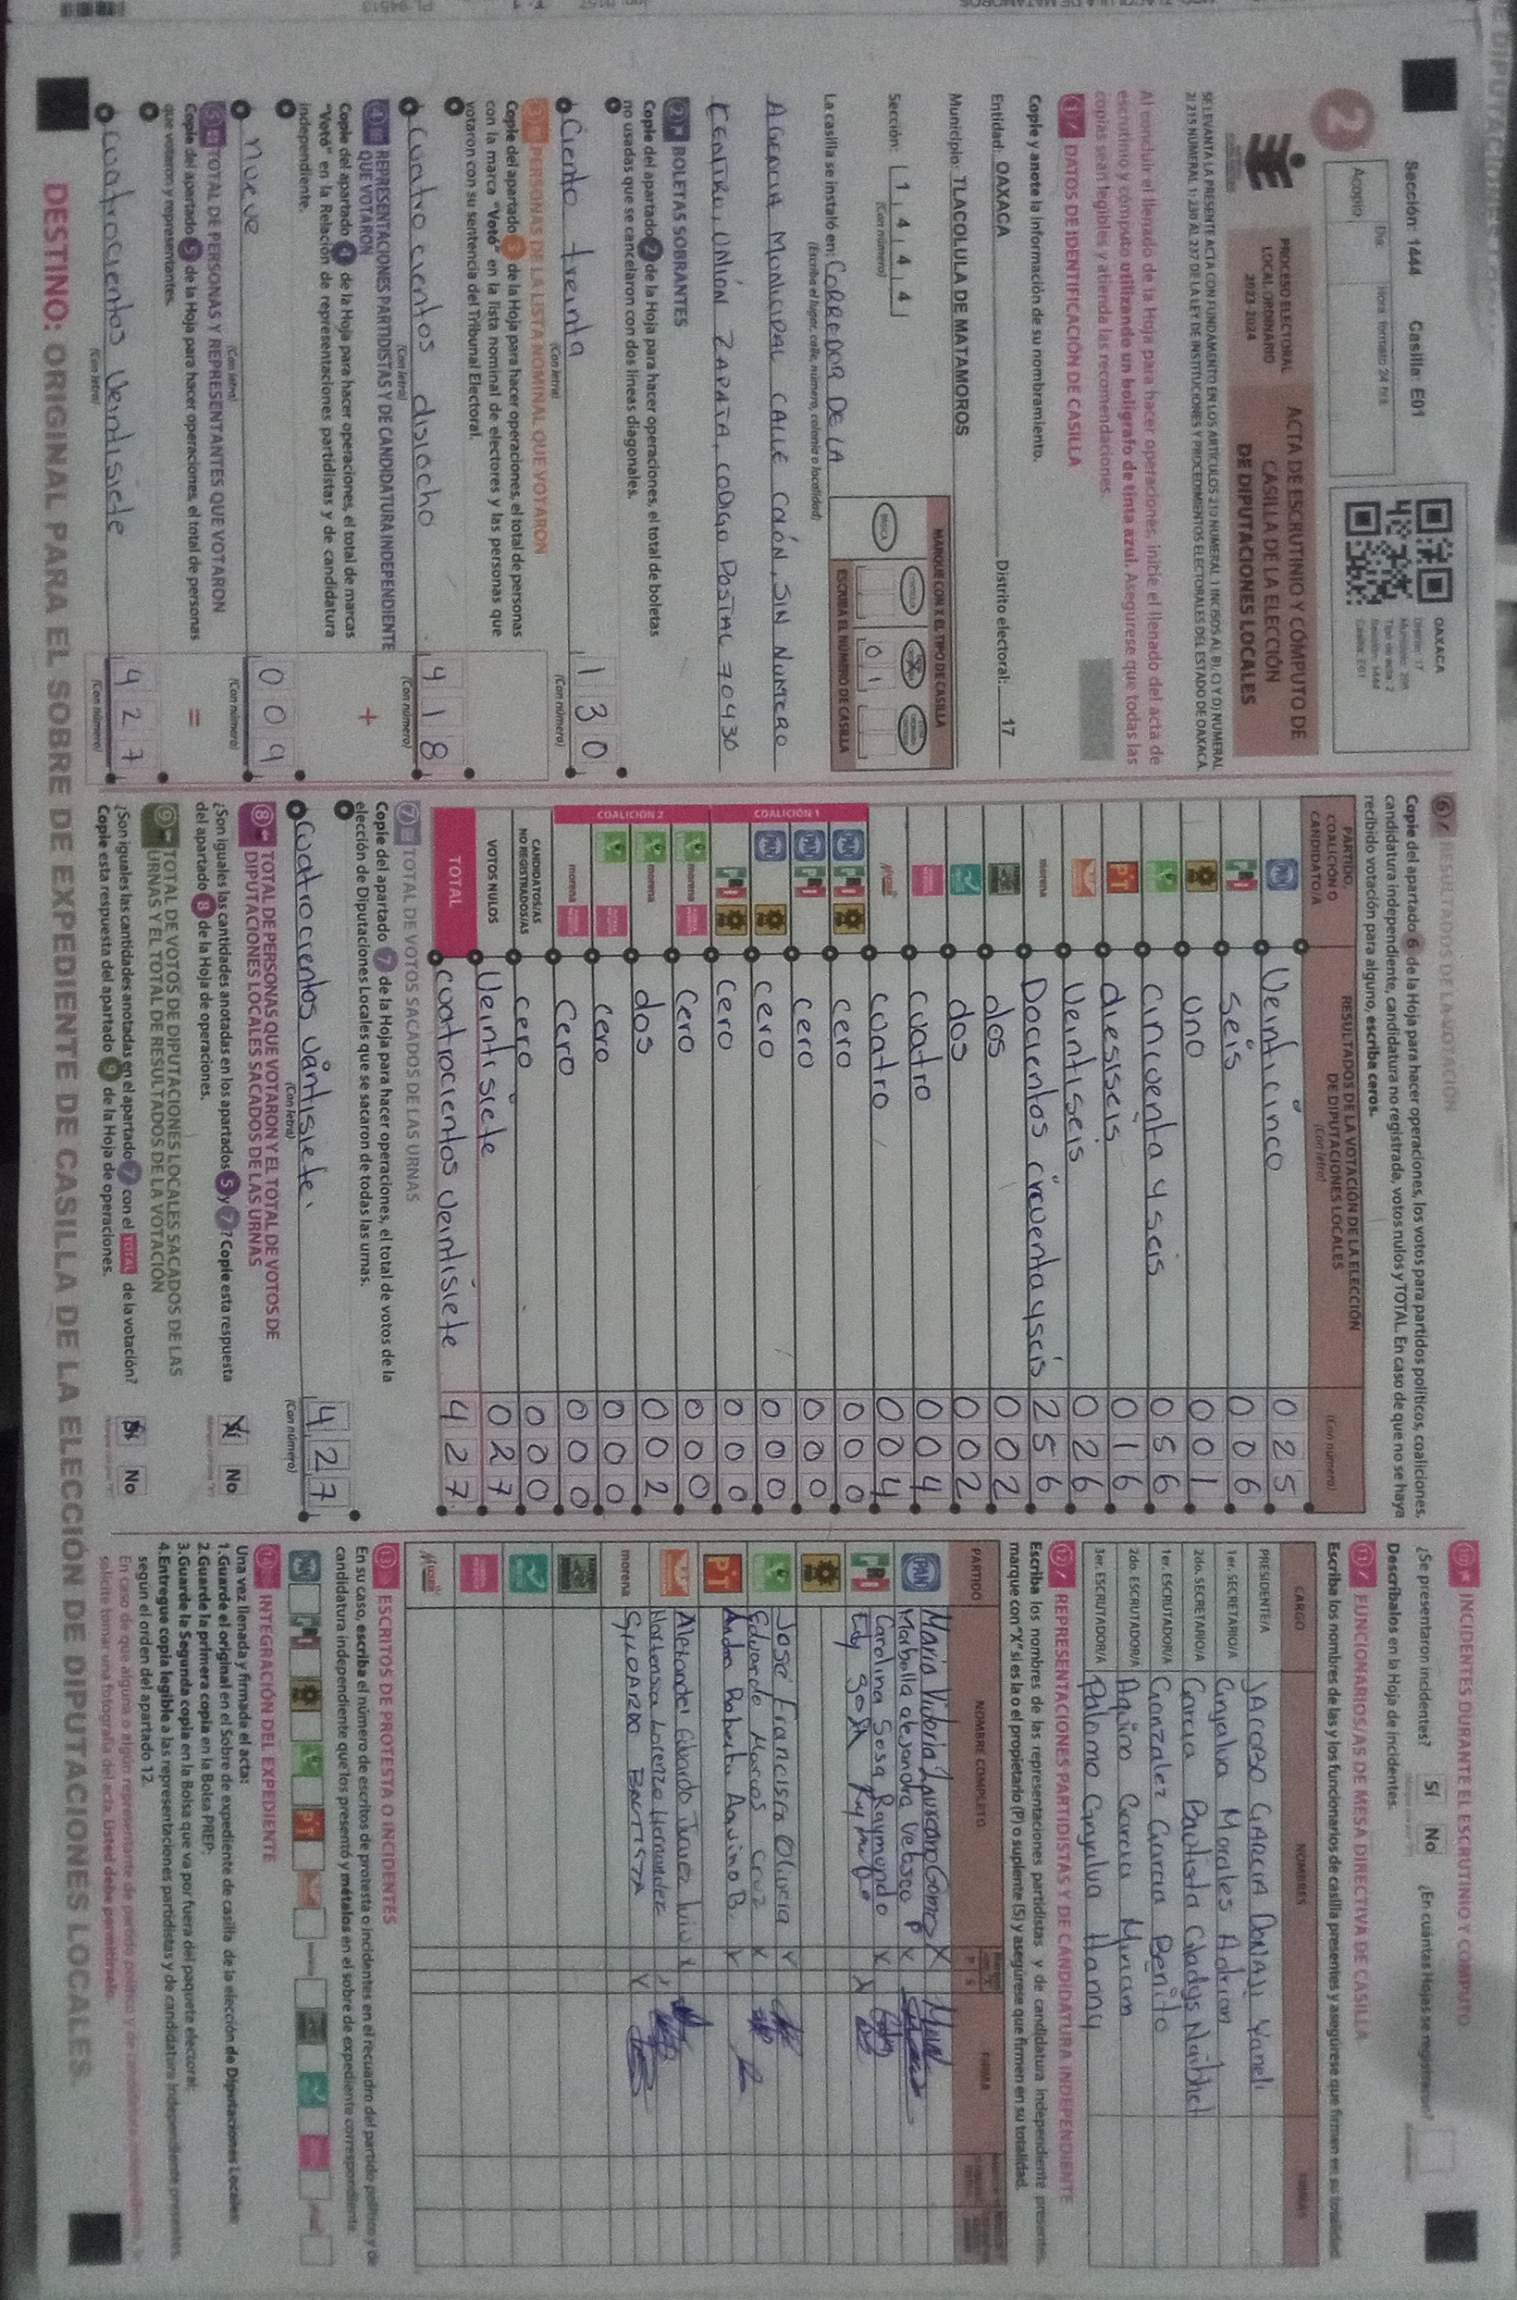 Sección: 1444 Casilla: E01
2
Acopio
Día: Hora: formato 24 hrs.
OAXACA
Casilla: E01
PROCESO ELECTORAL
LOCAL ORDINARIO
2023-2024
ACTA DE ESCRUTINIO Y CÓMPUTO DE
CASILLA DE LA ELECCIÓN
DE DIPUTACIONES LOCALES
Al concluir el llenado de la Hoja para hacer operaciones, inicie el llenado del acta de
escrutinio y cómputo utilizando un bolígrafo de tinta azul. Asegúrese que todas las
copias sean legibles y atienda las recomendaciones.
1 DATOS DE IDENTIFICACIÓN DE CASILLA
Copie y anote la información de su nombramiento.
Entidad: OAXACA Distrito electoral: 17
Municipio: TLACOLULA DE MATAMOROS
Sección: 1 4 4 4
(Con número)
MARQUE CON X EL TIPO DE CASILLA
0 1
ESCRIBA EL NÚMERO DE CASILLA
La casilla se instaló en: CORREDOR DE LA
(Escriba el lugar, calle, número, colonia o localidad)
AGENCIA MUNICIPAL CALLE COLÓN, SIN NUMERO
CENTRO, UNIÓN ZAPATA, CODIGO POSTAL 70430
2 BOLETAS SOBRANTES
Copie del apartado 2 de la Hoja para hacer operaciones, el total de boletas
no usadas que se cancelaron con dos líneas diagonales.
Ciento treinta 1 3 0
(Con letra) (Con número)
3 PERSONAS DE LA LISTA NOMINAL QUE VOTARON
Copie del apartado 3 de la Hoja para hacer operaciones, el total de personas
con la marca "Votó" en la lista nominal de electores y las personas que
votaron con su sentencia del Tribunal Electoral.
cuatro cientos disiocho 4 1 8
(Con letra) (Con número)
4 REPRESENTACIONES PARTIDISTAS Y DE CANDIDATURA INDEPENDIENTE
QUE VOTARON +
Copie del apartado 4 de la Hoja para hacer operaciones, el total de marcas
"Votó" en la Relación de representaciones partidistas y de candidatura
independiente.
nueve 0 0 9
(Con letra) (Con número)
5 TOTAL DE PERSONAS Y REPRESENTANTES QUE VOTARON
=
Copie del apartado 5 de la Hoja para hacer operaciones, el total de personas
que votaron y representantes.
cuatrocientos veintisiete 4 2 7
(Con letra) (Con número)
6 RESULTADOS DE LA VOTACIÓN
Copie del apartado 6 de la Hoja para hacer operaciones, los votos para partidos políticos, coaliciones,
candidatura independiente, candidatura no registrada, votos nulos y TOTAL. En caso de que no se haya
recibido votación para alguno, escriba ceros.
PARTIDO,
COALICIÓN O
CANDIDATO/A
RESULTADOS DE LA VOTACIÓN DE LA ELECCIÓN
DE DIPUTACIONES LOCALES
(Con letra) (Con número)
PAN Veinticinco 0 2 5
PRI Seis 0 0 6
PRD Uno 0 0 1
cincuenta y seis 0 5 6
PT dieciseis 0 1 6
Veintiseis 0 2 6
morena Docientos cincuenta y seis 2 5 6
dos 0 0 2
dos 0 0 2
cuatro 0 0 4
cuatro 0 0 4
COALICIÓN 1
PAN PRI PRD cero 0 0 0
PAN PRI cero 0 0 0
PAN PRD cero 0 0 0
PRI PRD cero 0 0 0
COALICIÓN 2
morena cero 0 0 0
morena dos 0 0 2
cero 0 0 0
morena Cero 0 0 0
CANDIDATOS/AS
NO REGISTRADOS/AS cero 0 0 0
VOTOS NULOS Veintisiete 0 2 7
TOTAL cuatrocientos veintisiete 4 2 7
7 TOTAL DE VOTOS SACADOS DE LAS URNAS
Copie del apartado 7 de la Hoja para hacer operaciones, el total de votos de la
elección de Diputaciones Locales que se sacaron de todas las urnas.
Cuatrocientos vantisiete. 4 2 7
(Con letra) (Con número)
8 TOTAL DE PERSONAS QUE VOTARON Y EL TOTAL DE VOTOS DE
DIPUTACIONES LOCALES SACADOS DE LAS URNAS
¿Son iguales las cantidades anotadas en los apartados 5 y 7? Copie esta respuesta
del apartado 8 de la Hoja de operaciones.
Sí No
9 TOTAL DE VOTOS DE DIPUTACIONES LOCALES SACADOS DE LAS
URNAS Y EL TOTAL DE RESULTADOS DE LA VOTACIÓN
¿Son iguales las cantidades anotadas en el apartado 7 con el TOTAL de la votación?
Copie esta respuesta del apartado 9 de la Hoja de operaciones.
Sí No
10 INCIDENTES DURANTE EL ESCRUTINIO Y CÓMPUTO
¿Se presentaron incidentes? Sí No ¿En cuántas Hojas se registraron?
Descríbalos en la Hoja de incidentes.
11 FUNCIONARIOS/AS DE MESA DIRECTIVA DE CASILLA
Escriba los nombres de las y los funcionarios de casilla presentes y asegúrese que firmen en su totalidad.
CARGO NOMBRES FIRMAS
PRESIDENTE/A JACOBO GARCIA DONAJI Yaneli
1er. SECRETARIO/A Grijalva Morales Adrian
2do. SECRETARIO/A Garcia Bautista Gladys Naibhel
1er. ESCRUTADOR/A Gonzalez Garcia Benito
2do. ESCRUTADOR/A Aquino Garcia Miriam
3er. ESCRUTADOR/A Palomo Grijalva Hanny
12 REPRESENTACIONES PARTIDISTAS Y DE CANDIDATURA INDEPENDIENTE
Escriba los nombres de las representaciones partidistas y de candidatura independiente presentes,
marque con "X" si es la o el propietario (P) o suplente (S) y asegúrese que firmen en su totalidad.
PARTIDO NOMBRE COMPLETO FIRMA
PAN Maria Victoria Gomez X
Marbella alejandra Velasco P X
PRI Carolina Sosa Raymundo X
Edy SOSA X
José Francisco Olivera X
Eduardo Marcos Cruz X
PT Andrea Aquino B. X
Alexander Juarez X
Hortensia Lorenzo Hernandez X
morena GILDARDO BAUTISTA X
13 ESCRITOS DE PROTESTA O INCIDENTES
En su caso, escriba el número de escritos de protesta o incidentes en el recuadro del partido político y de
candidatura independiente que los presentó y métalos en el sobre de expediente correspondiente.
14 INTEGRACIÓN DEL EXPEDIENTE
Una vez llenada y firmada el acta:
1.Guarde el original en el Sobre de expediente de casilla de la elección de Diputaciones Locales;
2.Guarde la primera copia en la Bolsa PREP;
3.Guarde la Segunda copia en la Bolsa que va por fuera del paquete electoral;
4.Entregue copia legible a las representaciones partidistas y de candidatura independiente presentes,
según el orden del apartado 12.
DESTINO: ORIGINAL PARA EL SOBRE DE EXPEDIENTE DE CASILLA DE LA ELECCIÓN DE DIPUTACIONES LOCALES.